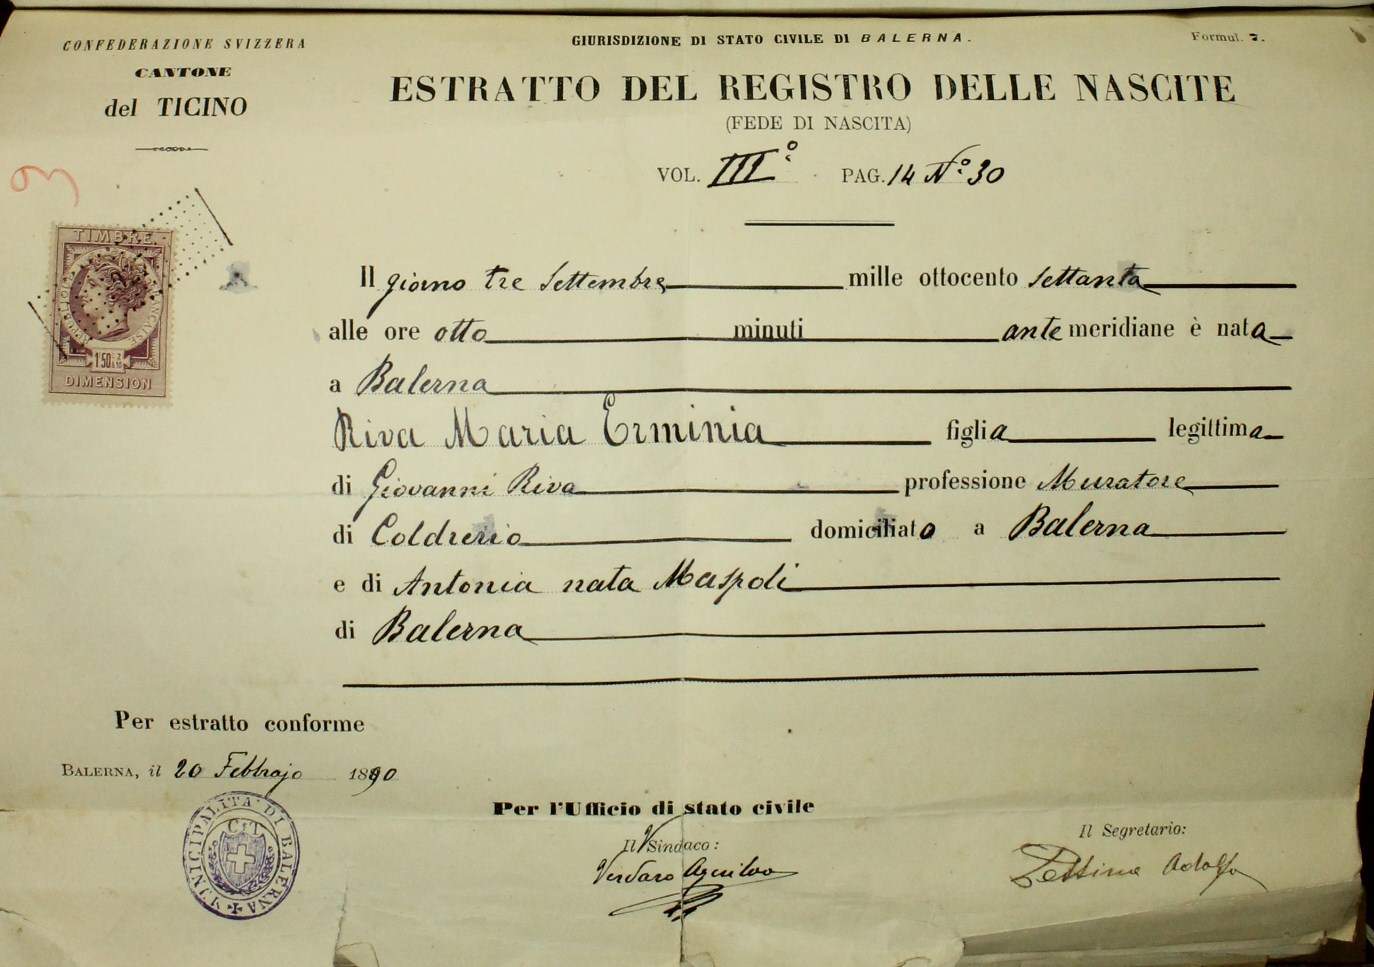 CONFEDERAZIONE SVIZZERA
CANTONE
del TICINO
GIURISDIZIONE DI STATO CIVILE DI BALERNA.
Formul. 7.
ESTRATTO DEL REGISTRO DELLE NASCITE
(FEDE DI NASCITA)
VOL. III° PAG. 14 N.° 30
3
TIMBRE
REPUBLIQUE FRANÇAISE
1 50
DIMENSION
Il giorno tre Settembre mille ottocento settanta
alle ore otto minuti antemeridiane è nata
a Balerna
Riva Maria Erminia figlia legittima
di Giovanni Riva professione Muratore
di Coldrerio domiciliato a Balerna
e di Antonia nata Maspoli
di Balerna
Per estratto conforme
BALERNA, il 20 Febbrajo 1890
MUNICIPALITA' DI BALERNA
C.T.
Per l'Ufficio di stato civile
Il Sindaco:
Verdaro
Il Segretario:
Pettina Adolfo